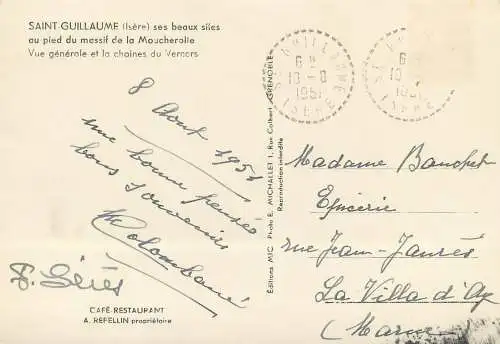 SAINT-GUILLAUME (Isère) ses beaux sites
au pied du massif de la Moucherolle
Vue générale et la chaines du Vercors
8 Aout 1951
une bonne pensée
bons souvenirs
CAFÉ-RESTAURANT
A. REFELLIN propriétaire
Editions MJC Photo E. MICHALLET 1, Rue Colbert GRENOBLE
Reproduction interdite
ST GUILLAUME
6 H
10 - 8
1951
ISERE
6
10
ISERE
Madame Banchet
Epicerie
rue Jean-Jaurès
La Villa d'Ay
(Marne)